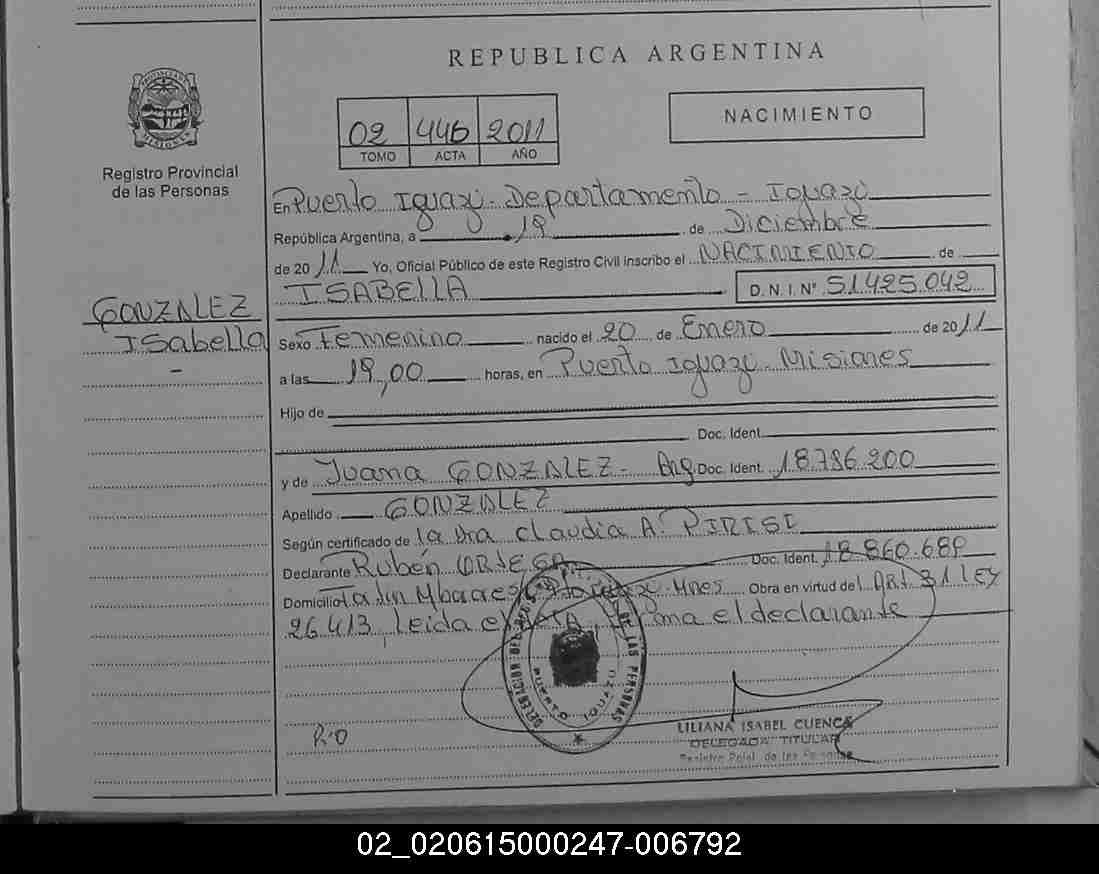 REPUBLICA ARGENTINA
PROVINCIA DE MISIONES
Registro Provincial
de las Personas
02 446 2011
TOMO ACTA AÑO
NACIMIENTO
En Puerto Iguazú - Departamento - Iguazú
República Argentina, a 19 de Diciembre
de 2011 Yo, Oficial Público de este Registro Civil inscribo el NACIMIENTO de
ISABELLA D. N. I. Nº 51.425.042
GONZALEZ
Isabella
-
Sexo Femenino nacido el 20 de Enero de 2011
a las 19,00 horas, en Puerto Iguazú - Misiones
Hijo de
Doc. Ident.
y de Juana GONZALEZ - Arg Doc. Ident. 18.786.200
Apellido GONZALEZ
Según certificado de la Dra Claudia A. PIRISI
Declarante Rubén ORTEGA Doc. Ident. 18.860.689
Domicilio Mnes Obra en virtud del Art 31 LEY
26.413, Leida el ACTA, firma el declarante
DE LAS PERSONAS
PUERTO IGUAZU
R.O
LILIANA ISABEL CUENCA
DELEGADA TITULAR
Registro Pcial. de las Personas
02_020615000247-006792